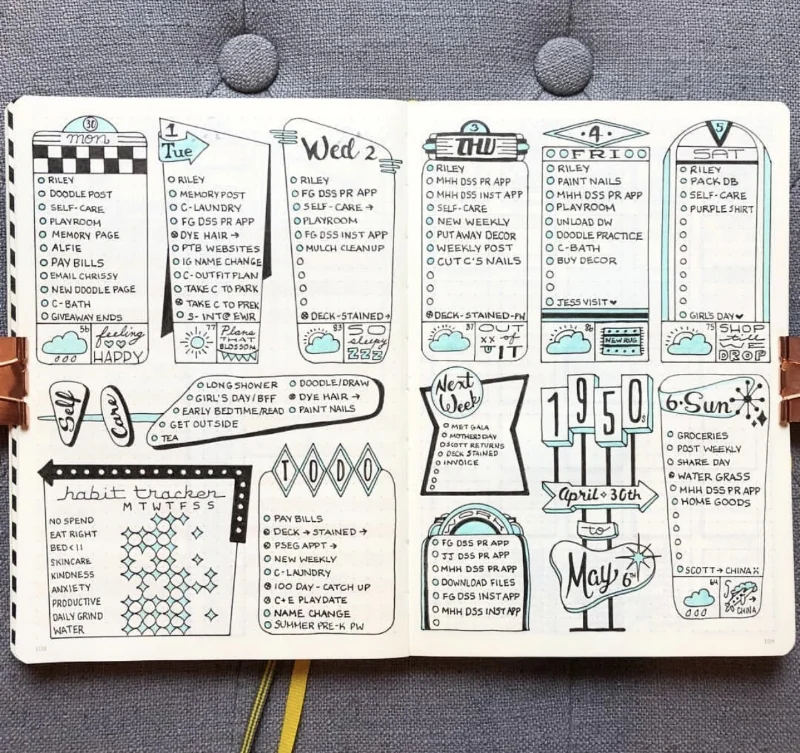 30
mon
RILEY
DOODLE POST
SELF-CARE
PLAYROOM
MEMORY PAGE
ALFIE
PAY BILLS
EMAIL CHRISSY
NEW DOODLE PAGE
C-BATH
GIVEAWAY ENDS
56
feeling
HAPPY
1
Tue
RILEY
MEMORY POST
C-LAUNDRY
FG DSS PR APP
DYE HAIR →
PTB WEBSITES
IG NAME CHANGE
C-OUTFIT PLAN
TAKE C TO PARK
TAKE C TO PREK
S-INT@EWR
77
Plans
THAT
BLOSSOM
Wed 2
RILEY
FG DSS PR APP
SELF-CARE →
PLAYROOM
FG DSS INST APP
MULCH CLEANUP
DECK-STAINED→
83
SO
sleepy
ZZZ
3
THU
RILEY
MHH DSS PR APP
MHH DSS INST APP
SELF-CARE
NEW WEEKLY
PUT AWAY DECOR
WEEKLY POST
CUT C'S NAILS
DECK-STAINED-PW
87
OUT
xx of
IT
4
FRI
RILEY
PAINT NAILS
MHH DSS PR APP
PLAYROOM
UNLOAD DW
DOODLE PRACTICE
C-BATH
BUY DECOR
JESS VISIT ♥
86
NEW RUG
5
SAT
RILEY
PACK DB
SELF-CARE
PURPLE SHIRT
GIRL'S DAY ♥
75
SHOP
till
WE
DROP
Self
Care
LONG SHOWER
GIRL'S DAY/BFF
EARLY BEDTIME/READ
GET OUTSIDE
TEA
DOODLE/DRAW
DYE HAIR →
PAINT NAILS
habit tracker
M T W T F S S
NO SPEND
EAT RIGHT
BED<11
SKINCARE
KINDNESS
ANXIETY
PRODUCTIVE
DAILY GRIND
WATER
TODO
PAY BILLS
DECK → STAINED →
PSEG APPT →
NEW WEEKLY
C-LAUNDRY
100 DAY-CATCH UP
C+E PLAYDATE
NAME CHANGE
SUMMER PRE-K PW
Next
Week
MET GALA
MOTHERS DAY
SCOTT RETURNS
DECK STAINED
INVOICE
WORK
FG DSS PR APP
JJ DSS PR APP
MHH DSS PR APP
DOWNLOAD FILES
FG DSS INST APP
MHH DSS INST APP
1950s
April 30th
to
May 6th
6 Sun
GROCERIES
POST WEEKLY
SHARE DAY
WATER GRASS
MHH DSS PR APP
HOME GOODS
SCOTT → CHINA
64
→ CHINA